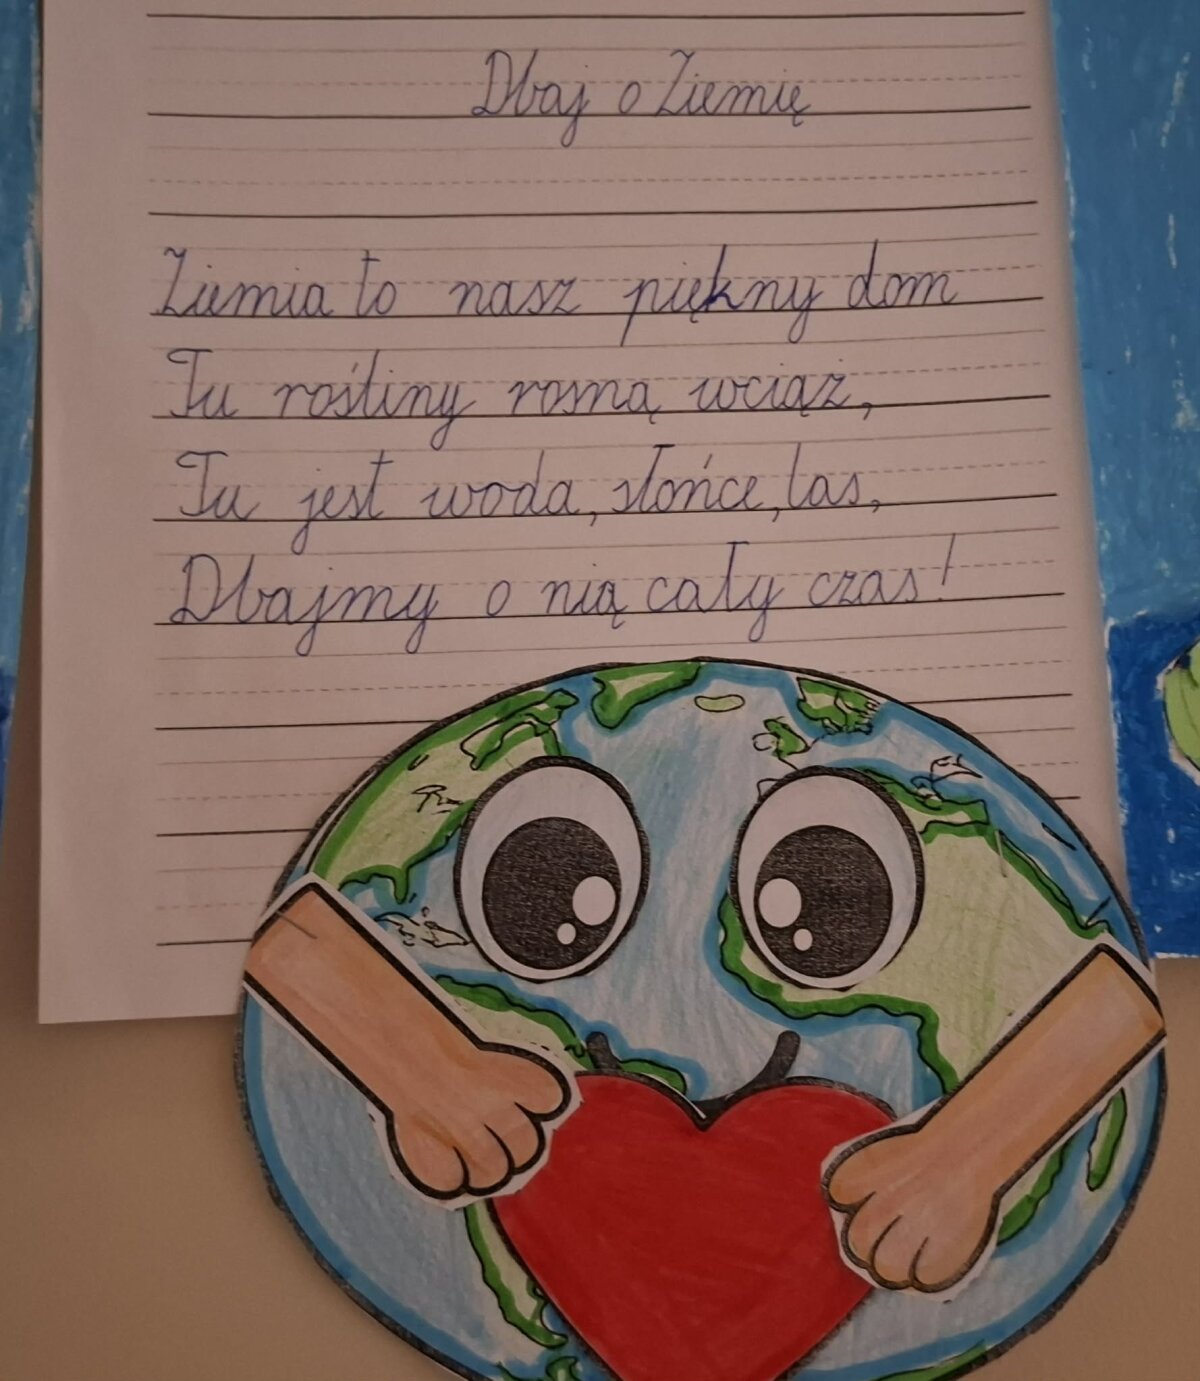 Dbaj o Ziemię
Ziemia to nasz piękny dom
Tu rośliny rosną wciąż,
Tu jest woda, słońce, las,
Dbajmy o nią cały czas!